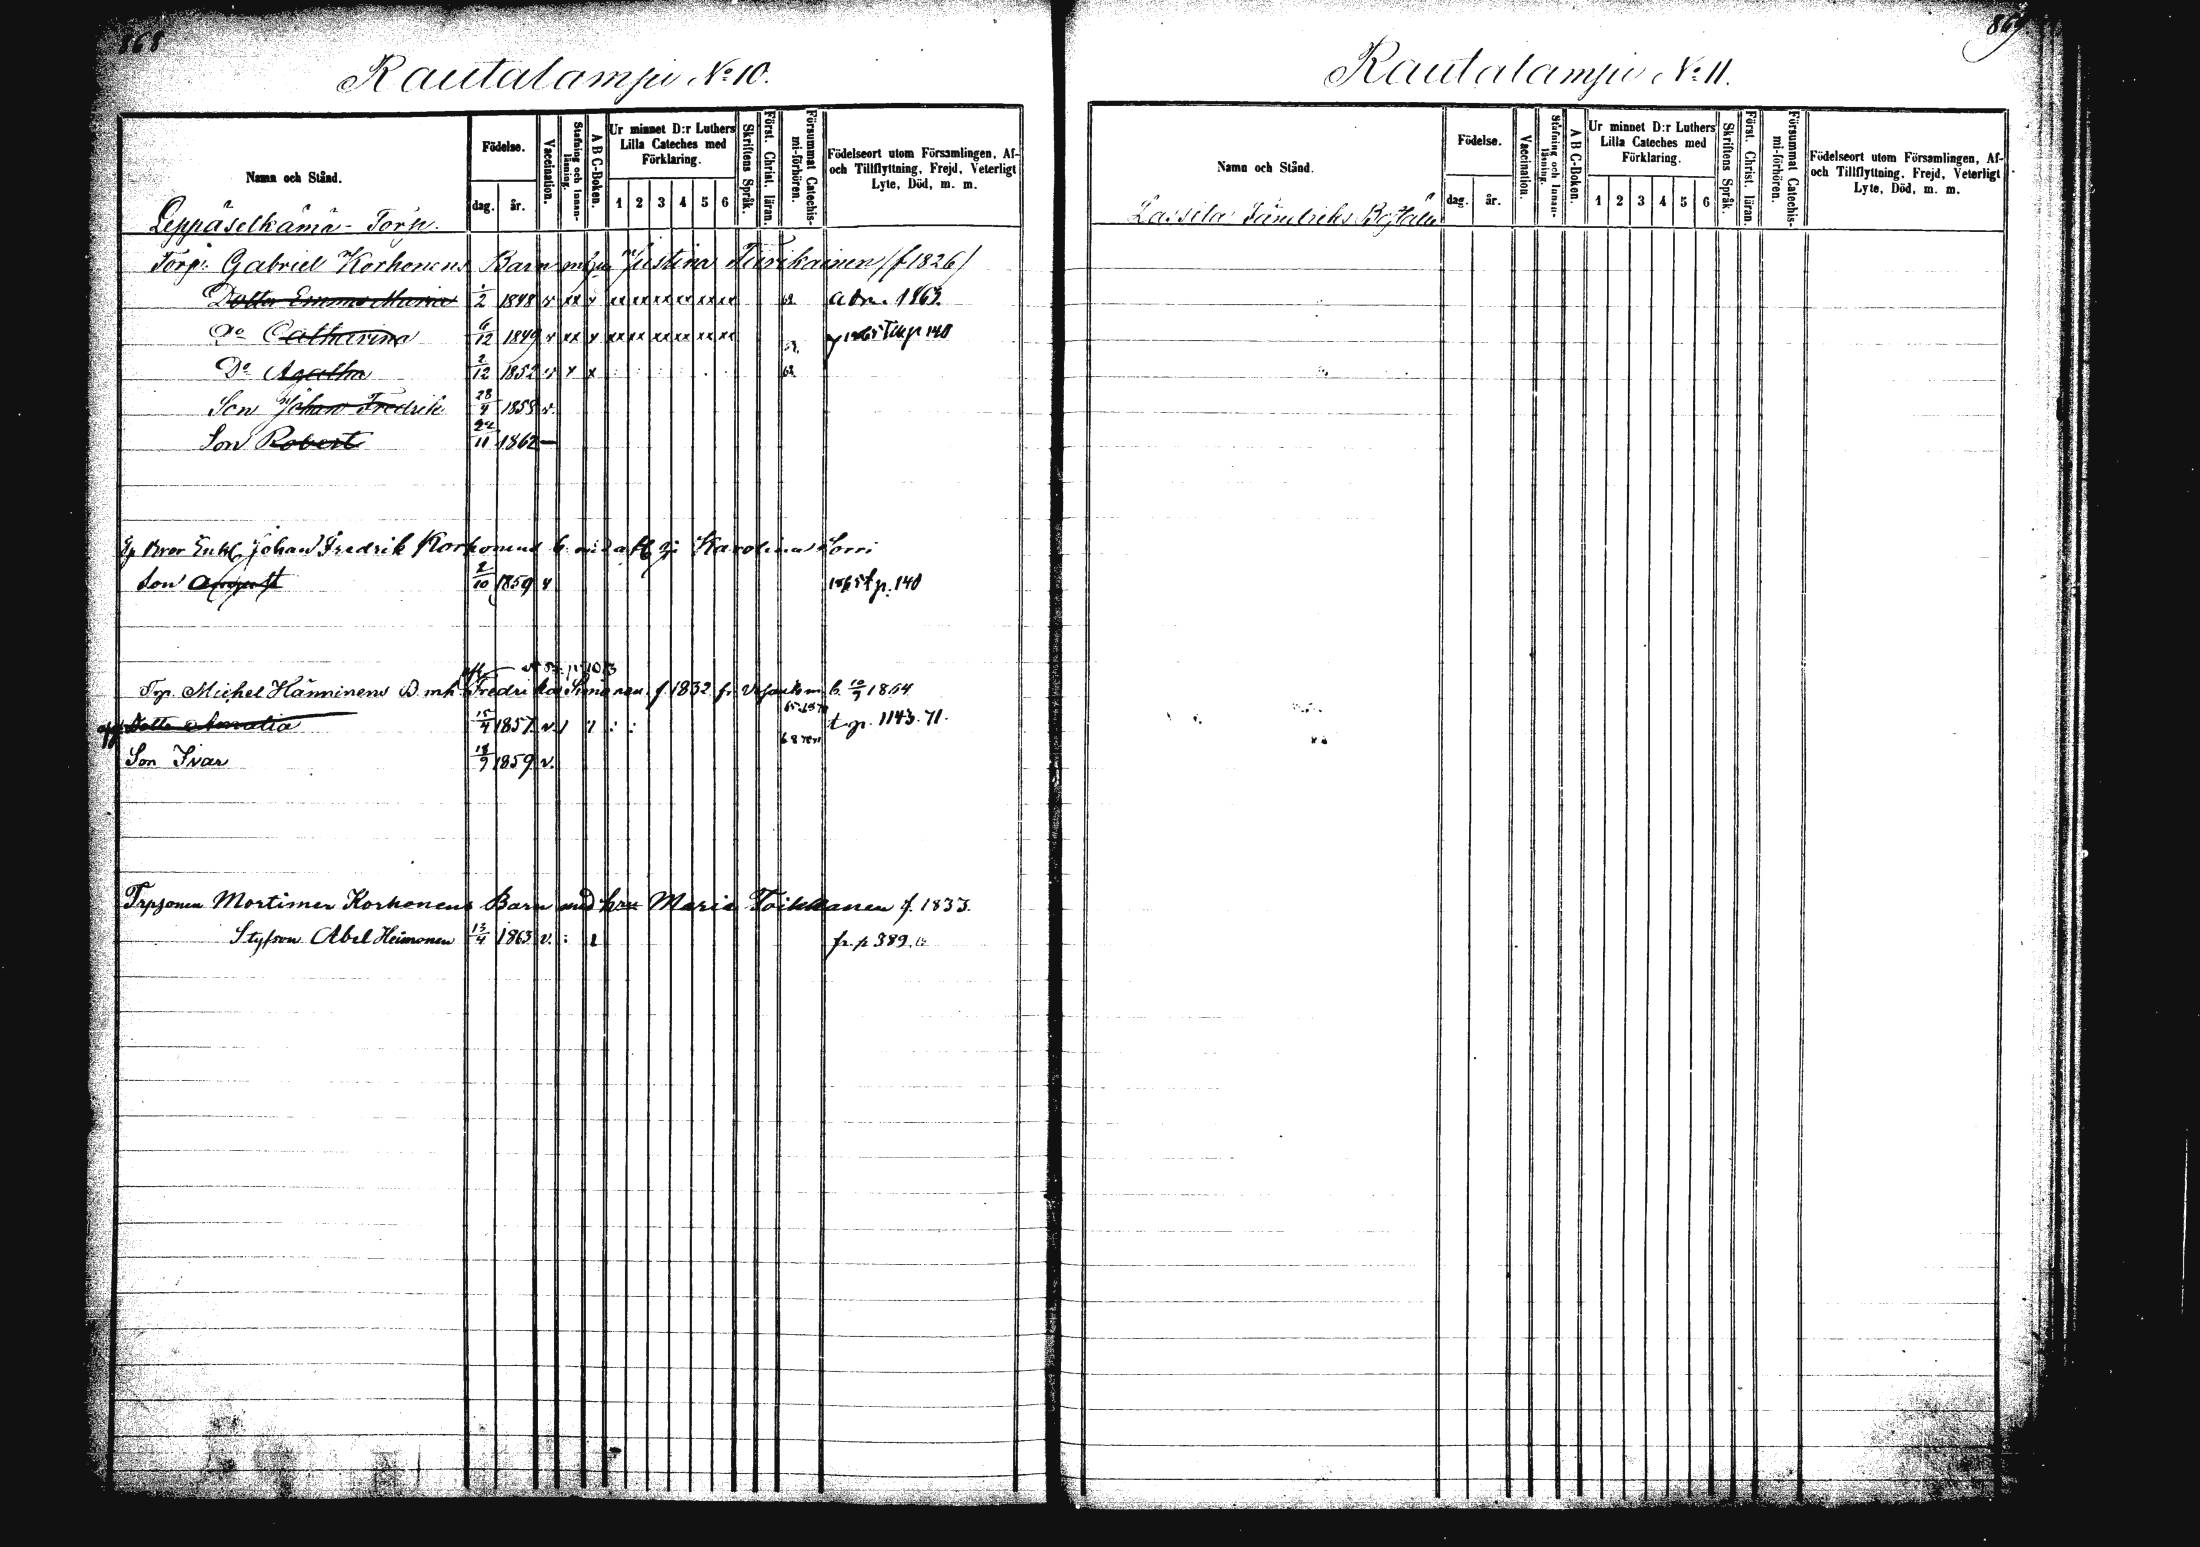 868
Rautalampi No 10.
Namn och Stånd.
Födelse.
dag.
år.
Vaccination.
Stafning och Innanläsning.
A B C-Boken.
Ur minnet D:r Luthers
Lilla Cateches med
Förklaring.
1 2 3 4 5 6
Skriftens Språk.
Först. Christ. läran.
Försummat Catechismi-förhören.
Födelseort utom Församlingen, Af-
och Tillflyttning, Frejd, Veterligt
Lyte, Död, m. m.
Leppäselkämä - Torp.
Torp: Gabriel Korhonens Barn Justina Tiirikainen (f 1826)
Dotter Emma Maria /2 1848 v xx x xx xx xx xx xx xx 62 adm. 1863.
Do Catharina 6/12 1849 v xx x xx xx xx xx xx xx 140
Do Agatha 2/12 1852 v x x 62
Son Johan Fredrik 28/4 1858 v.
Son Robert 24/11 1862 —
Johan Fredrik Korhonens Karolina Torri
Son August 2/10 1859 v 1865 t p. 140
Trp. Michel Hänninens B. mh Fredrika Simonen. f 1832 fr. b. 10/9 1864
Dotter Amalia 15/4 1857 v. t. p. 1143. 71.
Son Ivar 18/9 1859 v.
Trpsonen Mortimer Korhonens Barn med hru Maria Toikkanen f. 1833.
Styfson Abel Heimonen 13/4 1863 v. : 1 fr. p 389.
869
Rautalampi No 11.
Namn och Stånd.
Födelse.
dag.
år.
Vaccination.
Stafning och Innanläsning.
A B C-Boken.
Ur minnet D:r Luthers
Lilla Cateches med
Förklaring.
1 2 3 4 5 6
Skriftens Språk.
Först. Christ. läran.
Försummat Catechismi-förhören.
Födelseort utom Församlingen, Af-
och Tillflyttning, Frejd, Veterligt
Lyte, Död, m. m.
Lassila